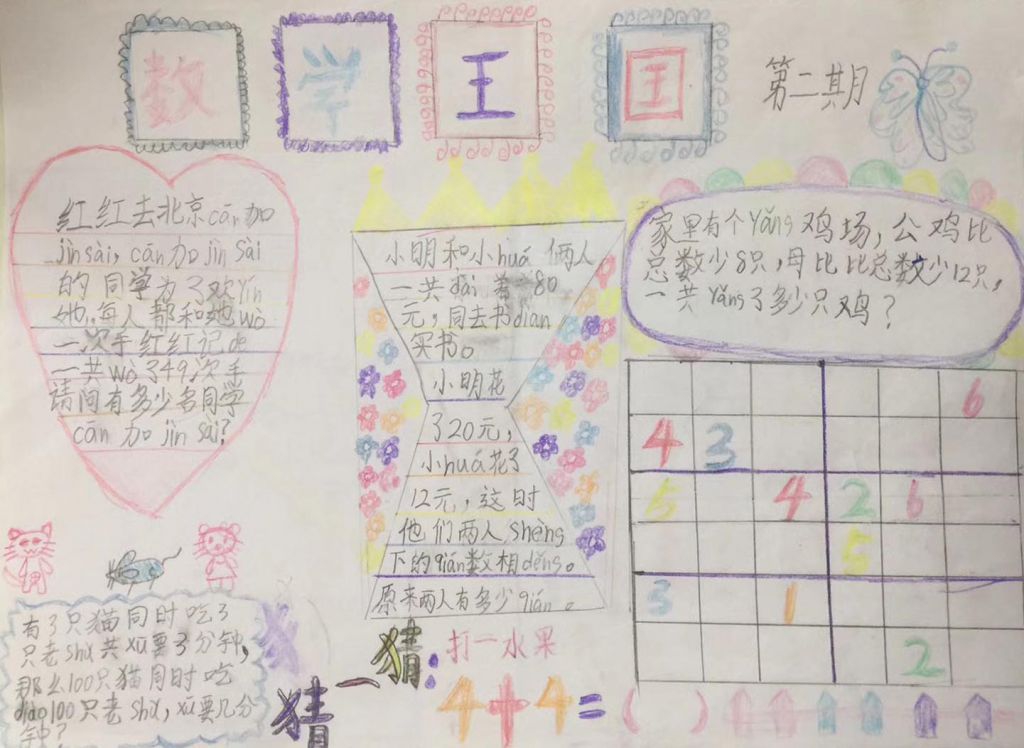 数学王国
第二期
红红去北京cān加
jìnsài, cān加jìn sài
的同学为了欢yín
她,每人都和她wò
一次手红红记de
一共wò了49次手
请问有多少名同学
cān加jìn sài?
小明和小huá俩人
一共dài着80
元,同去书diàn
买书。
小明花
了20元,
小huá花了
12元,这时
他们两人shèng
下的qián数相děng。
原来两人有多少qián。
家里有个Yǎng鸡场,公鸡比
总数少8只,母比比总数少12只,
一共Yǎng了多少只鸡?
6
4 3
5 4 2 6
5
3 1
2
有3只猫同时吃3
只老shǔ共xū要3分钟,
那么100只猫同时吃
diào100只老shǔ,xū要几分
钟?
猜一猜:
打一水果
4+4=( )